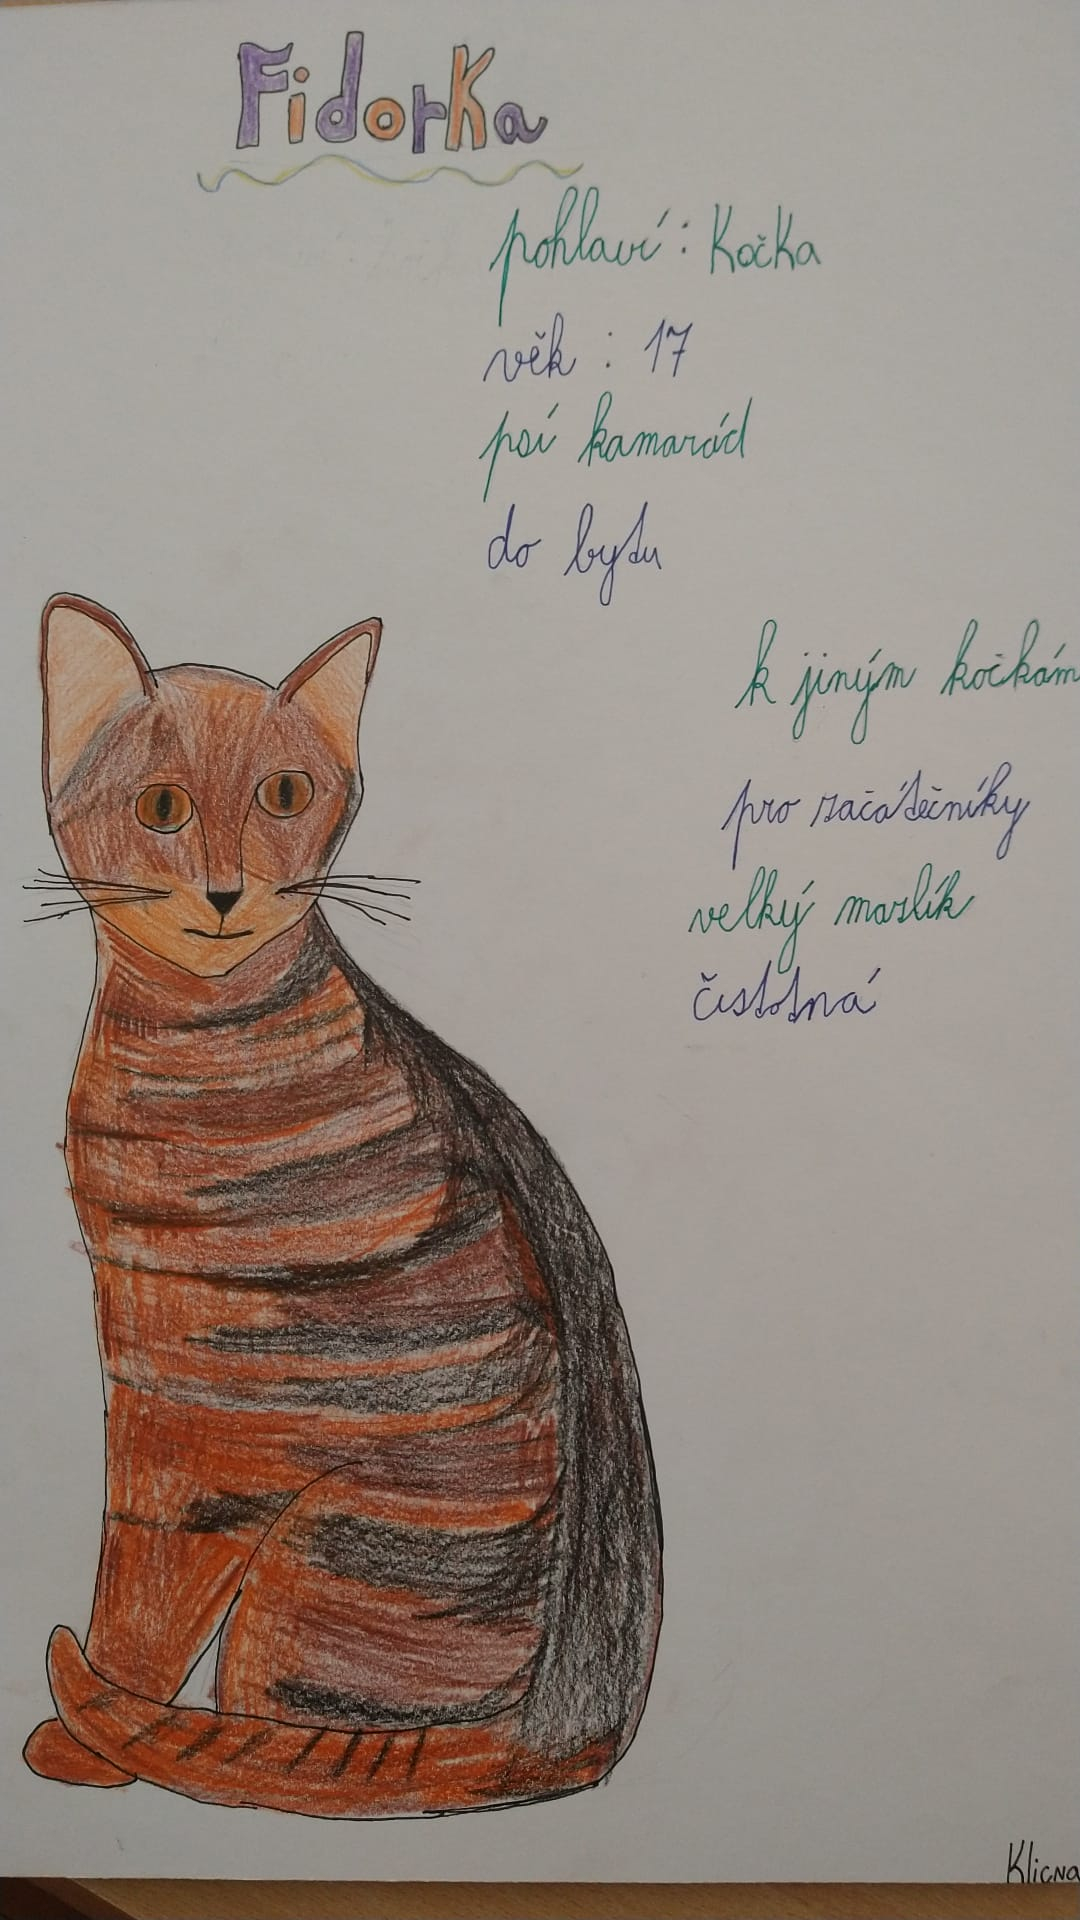 Fidorka
pohlaví : Kočka
věk : 17
psí kamarád
do bytu
k jiným kočkám
pro začátečníky
velký mazlík
čistotná
Klicna